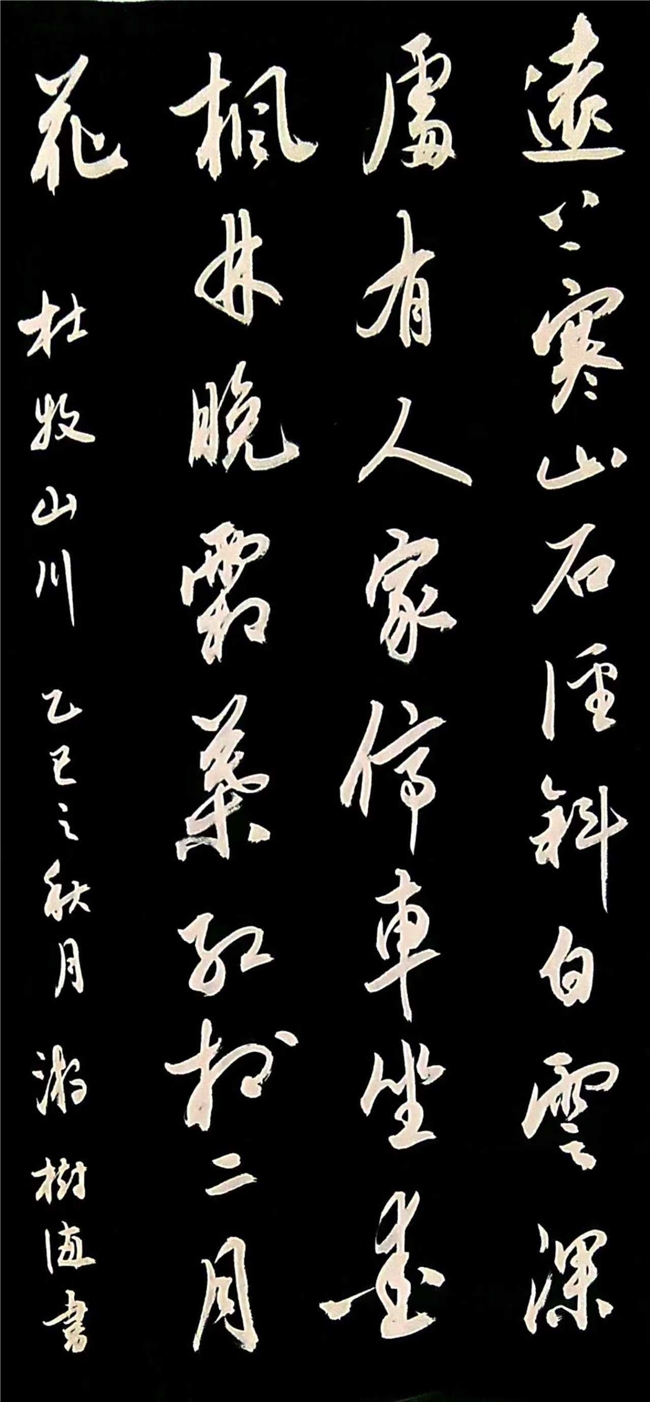 遠上寒山石徑斜白雲深
處有人家停車坐愛
楓林晚霜葉紅於二月
花 杜牧山行 乙巳之秋月 湘樹書